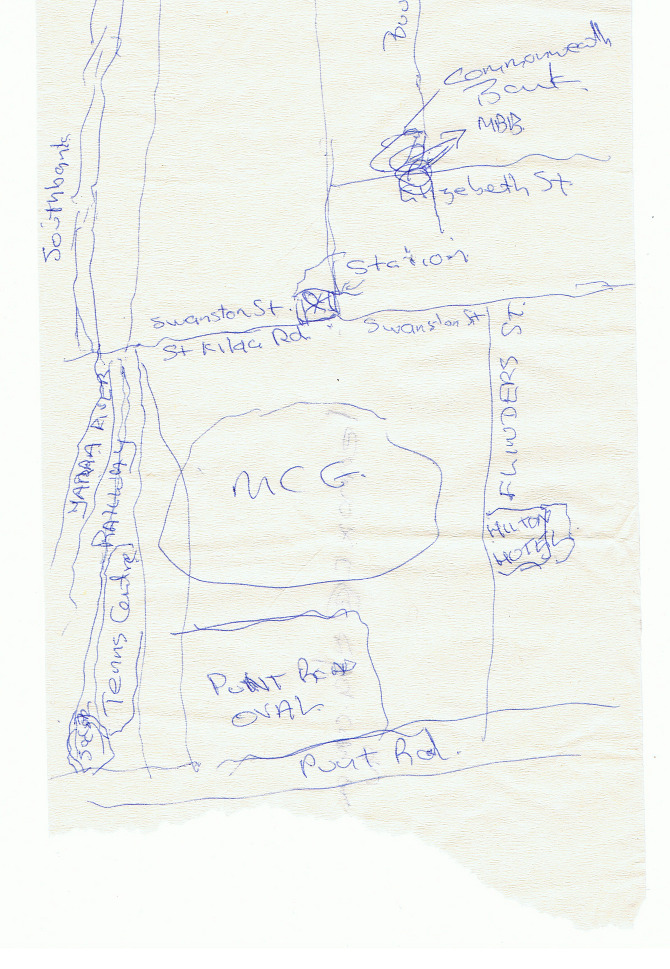 Commonwealth
Bank
MBB
Southbank
Elizabeth St.
Station
Swanston St.
Swanston St
St Kilda Rd
FLINDERS ST.
YARRA RIVER
RAILWAY
MCG.
HILTON
HOTEL
Tennis Centre
POINT
OVAL
Punt Rd.